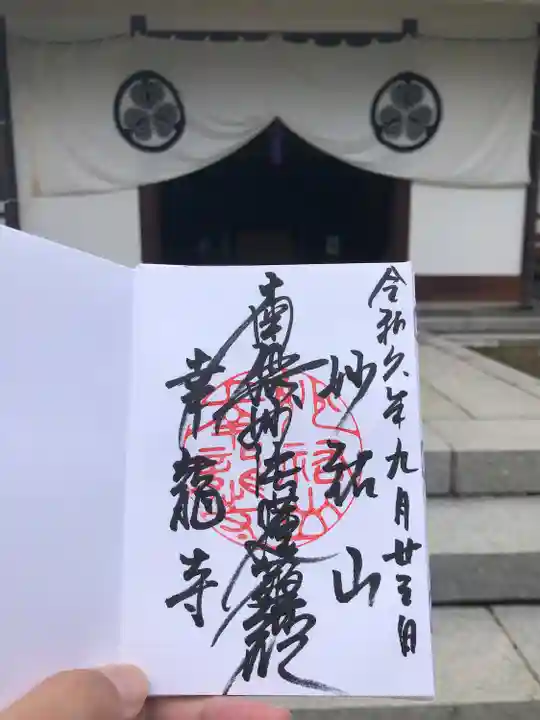 令和六年九月廿三日
妙祐山
南無妙法蓮華経
幸龍寺